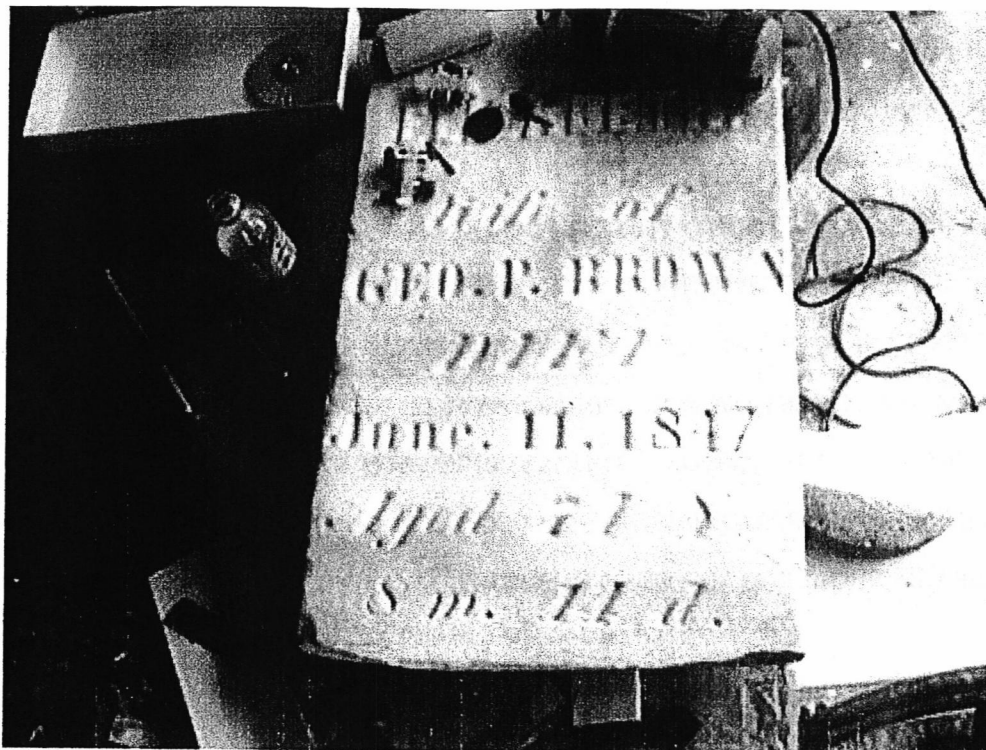 wife of
GEO. P. BROWN
DIED
June. 11. 1847
Aged 71 Y
8 m. 11 d.